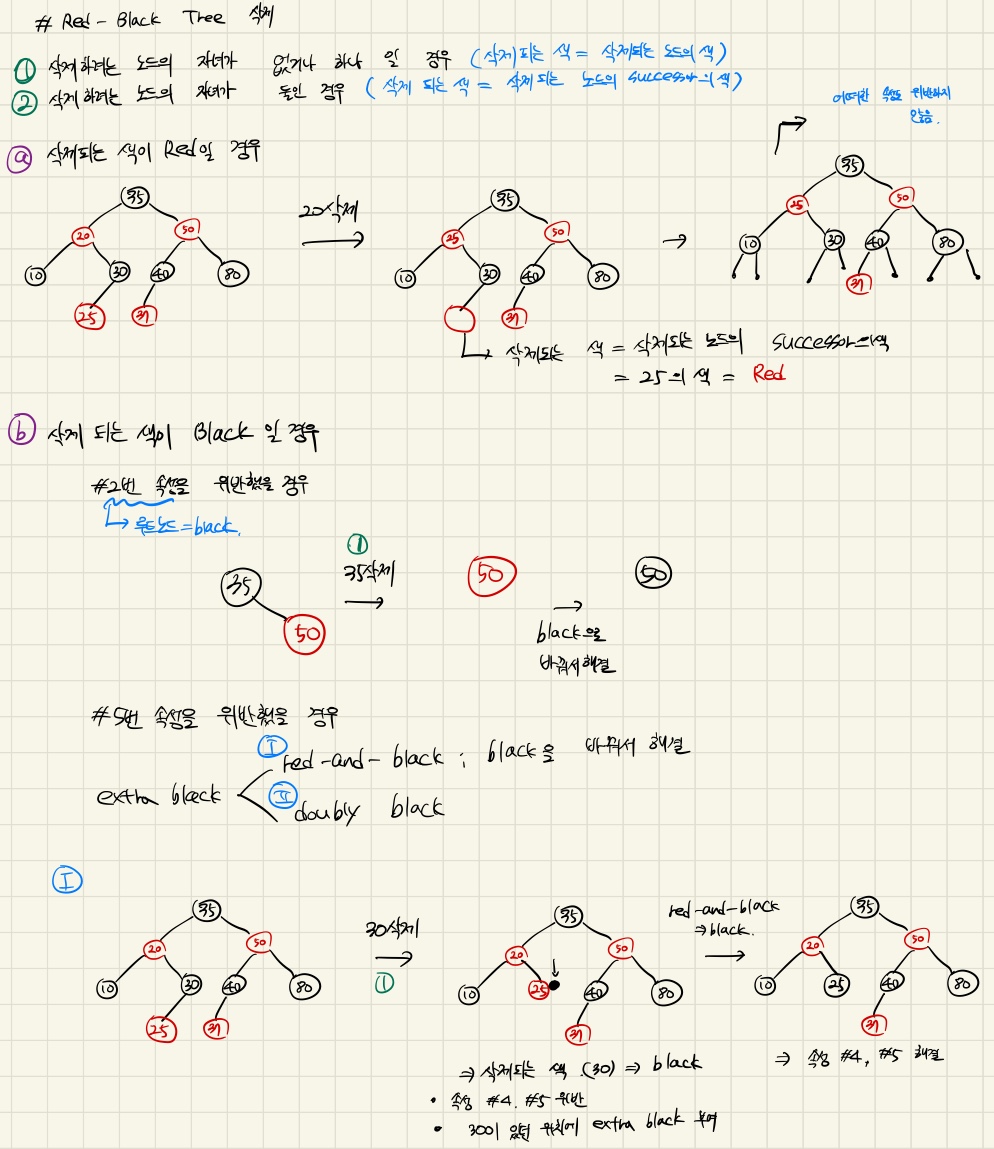 # Red-Black Tree 삭제
① 삭제하려는 노드의 자녀가 없거나 하나 일 경우 (삭제되는 색 = 삭제되는 노드의 색)
② 삭제하려는 노드의 자녀가 둘인 경우 (삭제 되는 색 = 삭제되는 노드의 successor의 색)
어떠한 속성도 위반하지
않음.
ⓐ 삭제되는 색이 Red일 경우
35
20 50
10 30 40 80
25 37
20삭제
35
25 50
10 30 40 80
37
35
25 50
10 30 40 80
37
삭제되는 색 = 삭제되는 노드의 successor의색
= 25의 색 = Red
ⓑ 삭제 되는 색이 Black 일 경우
#2번 속성을 위반했을 경우
루트노드=black.
35
50
①
35삭제
50
black으로
바꿔서 해결
50
#5번 속성을 위반했을 경우
extra black
Ⅰ red-and-black ; black을 바꿔서 해결
Ⅱ doubly black
Ⅰ
35
20 50
10 30 40 80
25 37
30삭제
①
35
20 50
10 25 40 80
37
red-and-black
⇒black.
35
20 50
10 25 40 80
37
⇒ 삭제되는 색.(30) ⇒ black
• 속성 #4, #5 위반
• 30이 있던 위치에 extra black 부여
⇒ 속성 #4, #5 해결